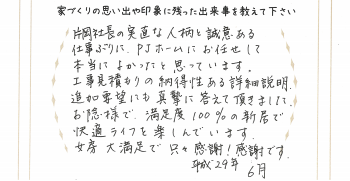 家づくりの思い出や印象に残った出来事を教えて下さい
片岡社長の実直な人柄と誠意ある
仕事ぶりに、PJホームにお任せして
本当によかったと思っています。
工事見積もりの納得性ある詳細説明、
追加要望にも真摯に答えて頂きまして、
お陰様で、満足度100%の新居で
快適ライフを楽しんでいます。
女房 大満足で 只々 感謝!感謝です。
平成29年 6月